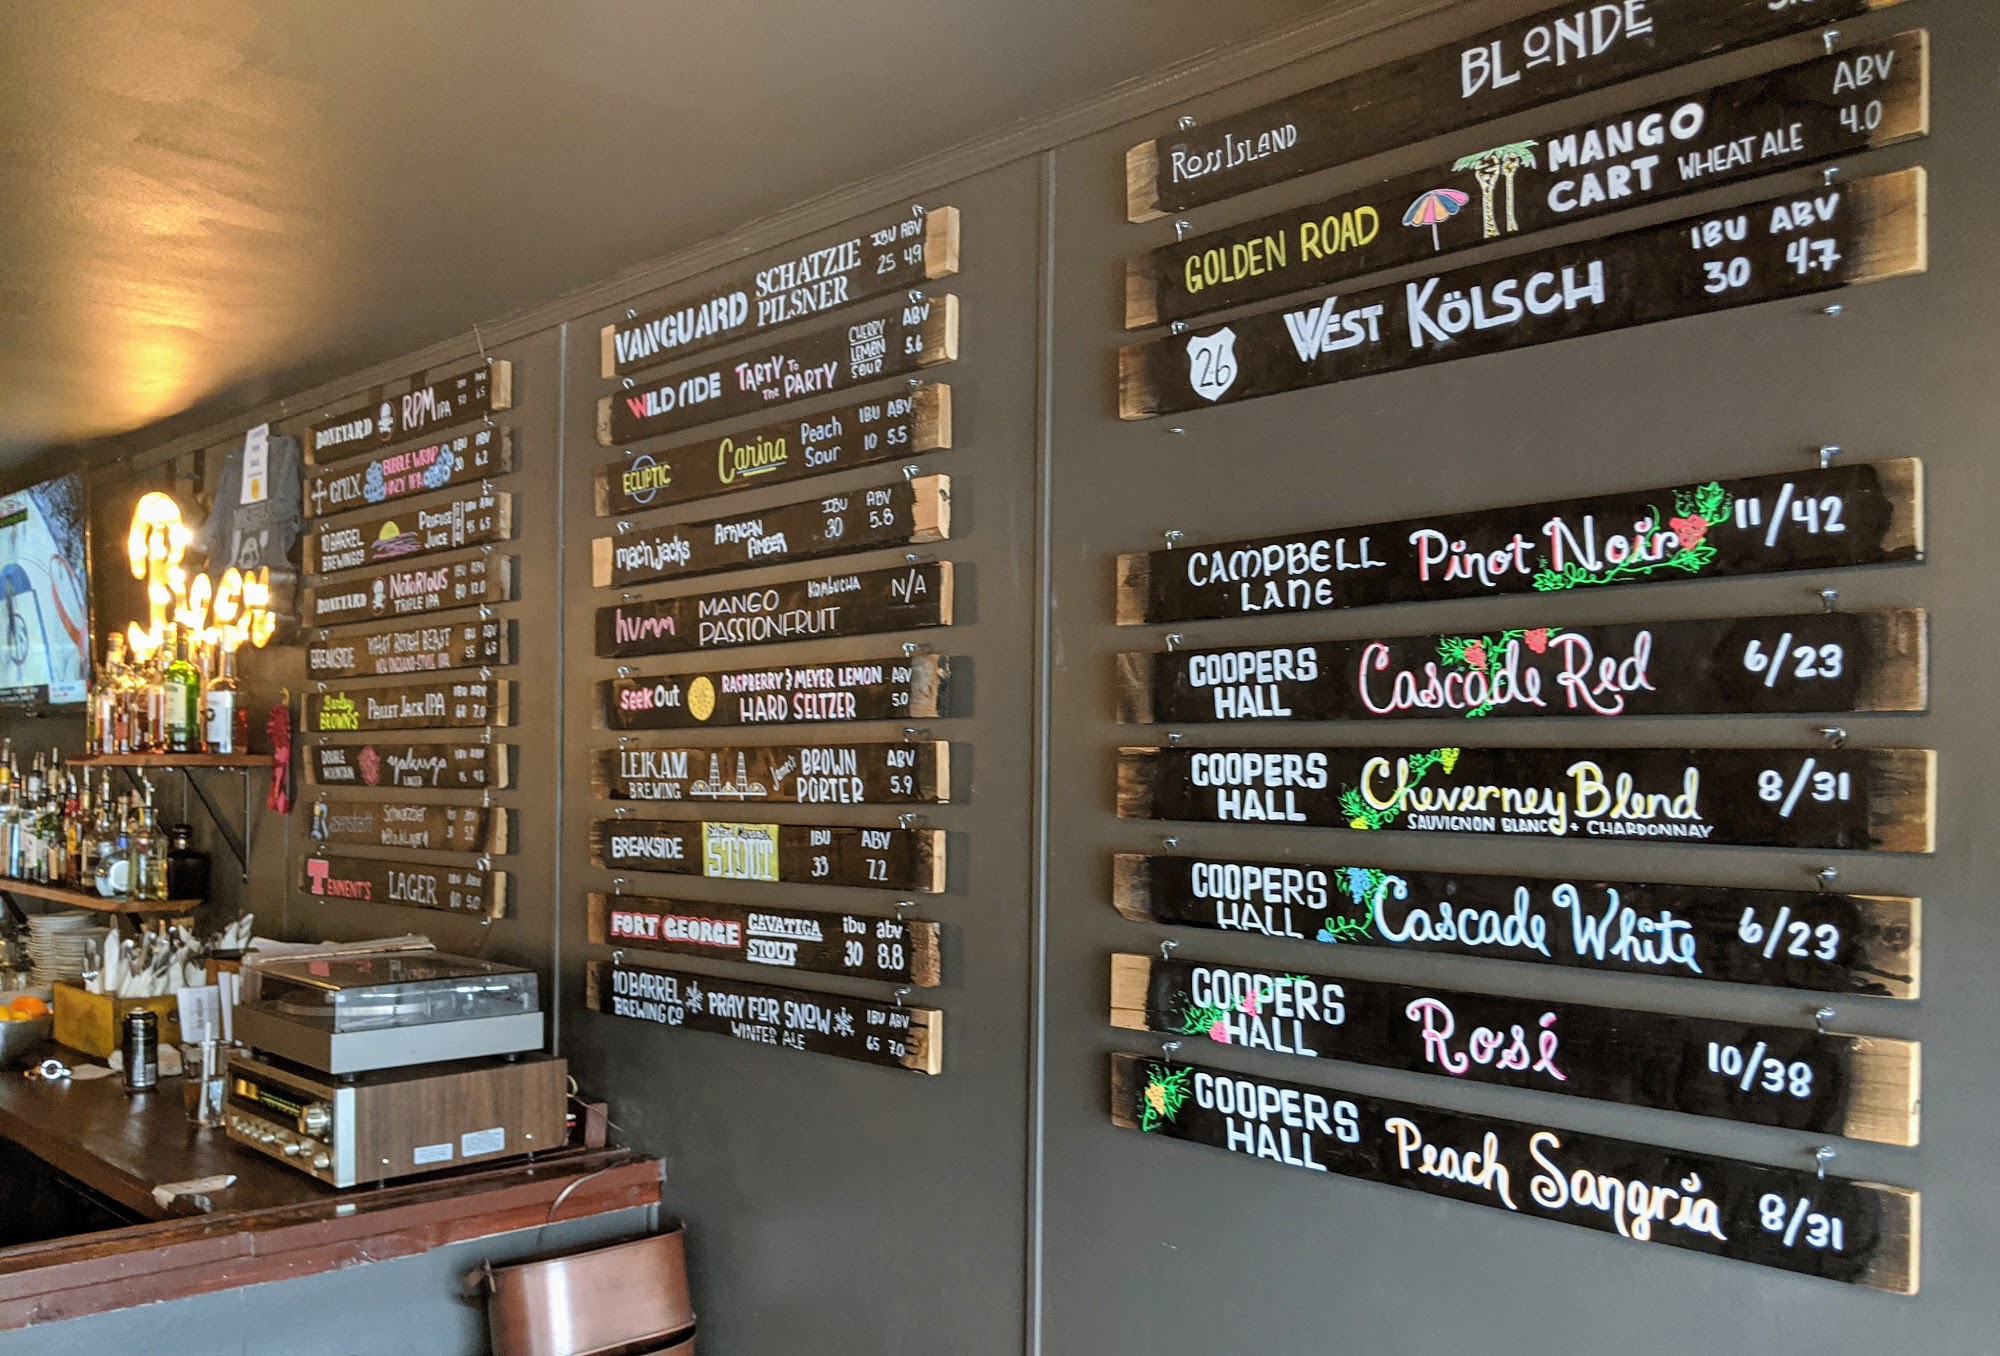 BONEYARD RPM IPA
CRUX BUBBLE WRAP HAZY IPA IBU 30 ABV 6.2
10 BARREL BREWING CO PROFUSE JUICE
BONEYARD NOTORIOUS TRIPLE IPA IBU 80 ABV 12.0
BREAKSIDE WHAT ROUGH BEAST NEW ENGLAND-STYLE IPA
Barley BROWN'S PALLET JACK IPA IBU ABV 7.0
DOUBLE MOUNTAIN yakuza LAGER
Rosenstadt Schwarzbier
TENNENT'S LAGER ABV 5.0
VANGUARD SCHATZIE PILSNER IBU 25 ABV 4.9
WILD RIDE TARTY To The PARTY CHERRY LEMON SOUR ABV 5.6
ECLIPTIC Carina Peach Sour IBU 10 ABV 5.5
mac'n jacks AFRICAN AMBER IBU 30 ABV 5.8
humm MANGO PASSIONFRUIT KOMBUCHA N/A
Seek Out RASPBERRY & MEYER LEMON HARD SELTZER ABV 5.0
LEIKAM BREWING James's BROWN PORTER ABV 5.9
BREAKSIDE Salted Caramel STOUT IBU 33 ABV 7.2
FORT GEORGE CAVATICA STOUT ibu 30 abv 8.8
10 BARREL BREWING CO PRAY FOR SNOW WINTER ALE IBU 65 ABV 7.0
ROSS ISLAND BLONDE
GOLDEN ROAD MANGO CART WHEAT ALE ABV 4.0
26 WEST KÖLSCH IBU 30 ABV 4.7
CAMPBELL LANE Pinot Noir 11/42
COOPERS HALL Cascade Red 6/23
COOPERS HALL Cheverney Blend SAUVIGNON BLANC + CHARDONNAY 8/31
COOPERS HALL Cascade White 6/23
COOPERS HALL Rosé 10/38
COOPERS HALL Peach Sangria 8/31